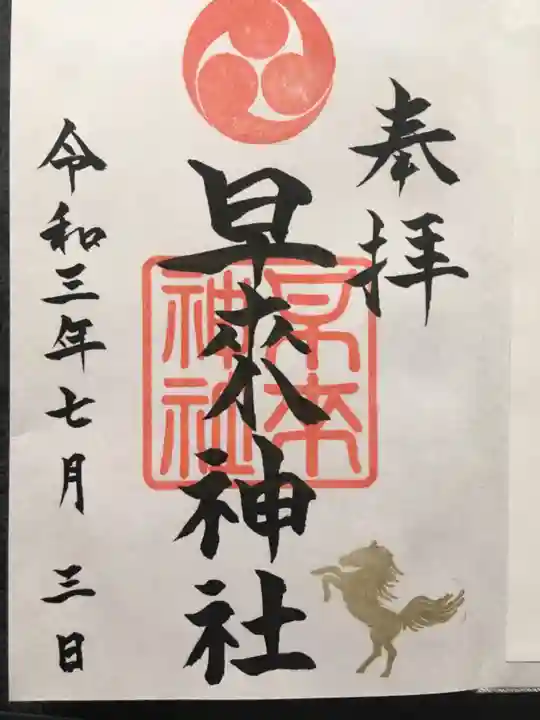 奉拝
早來神社
早來神社
令和三年七月三日